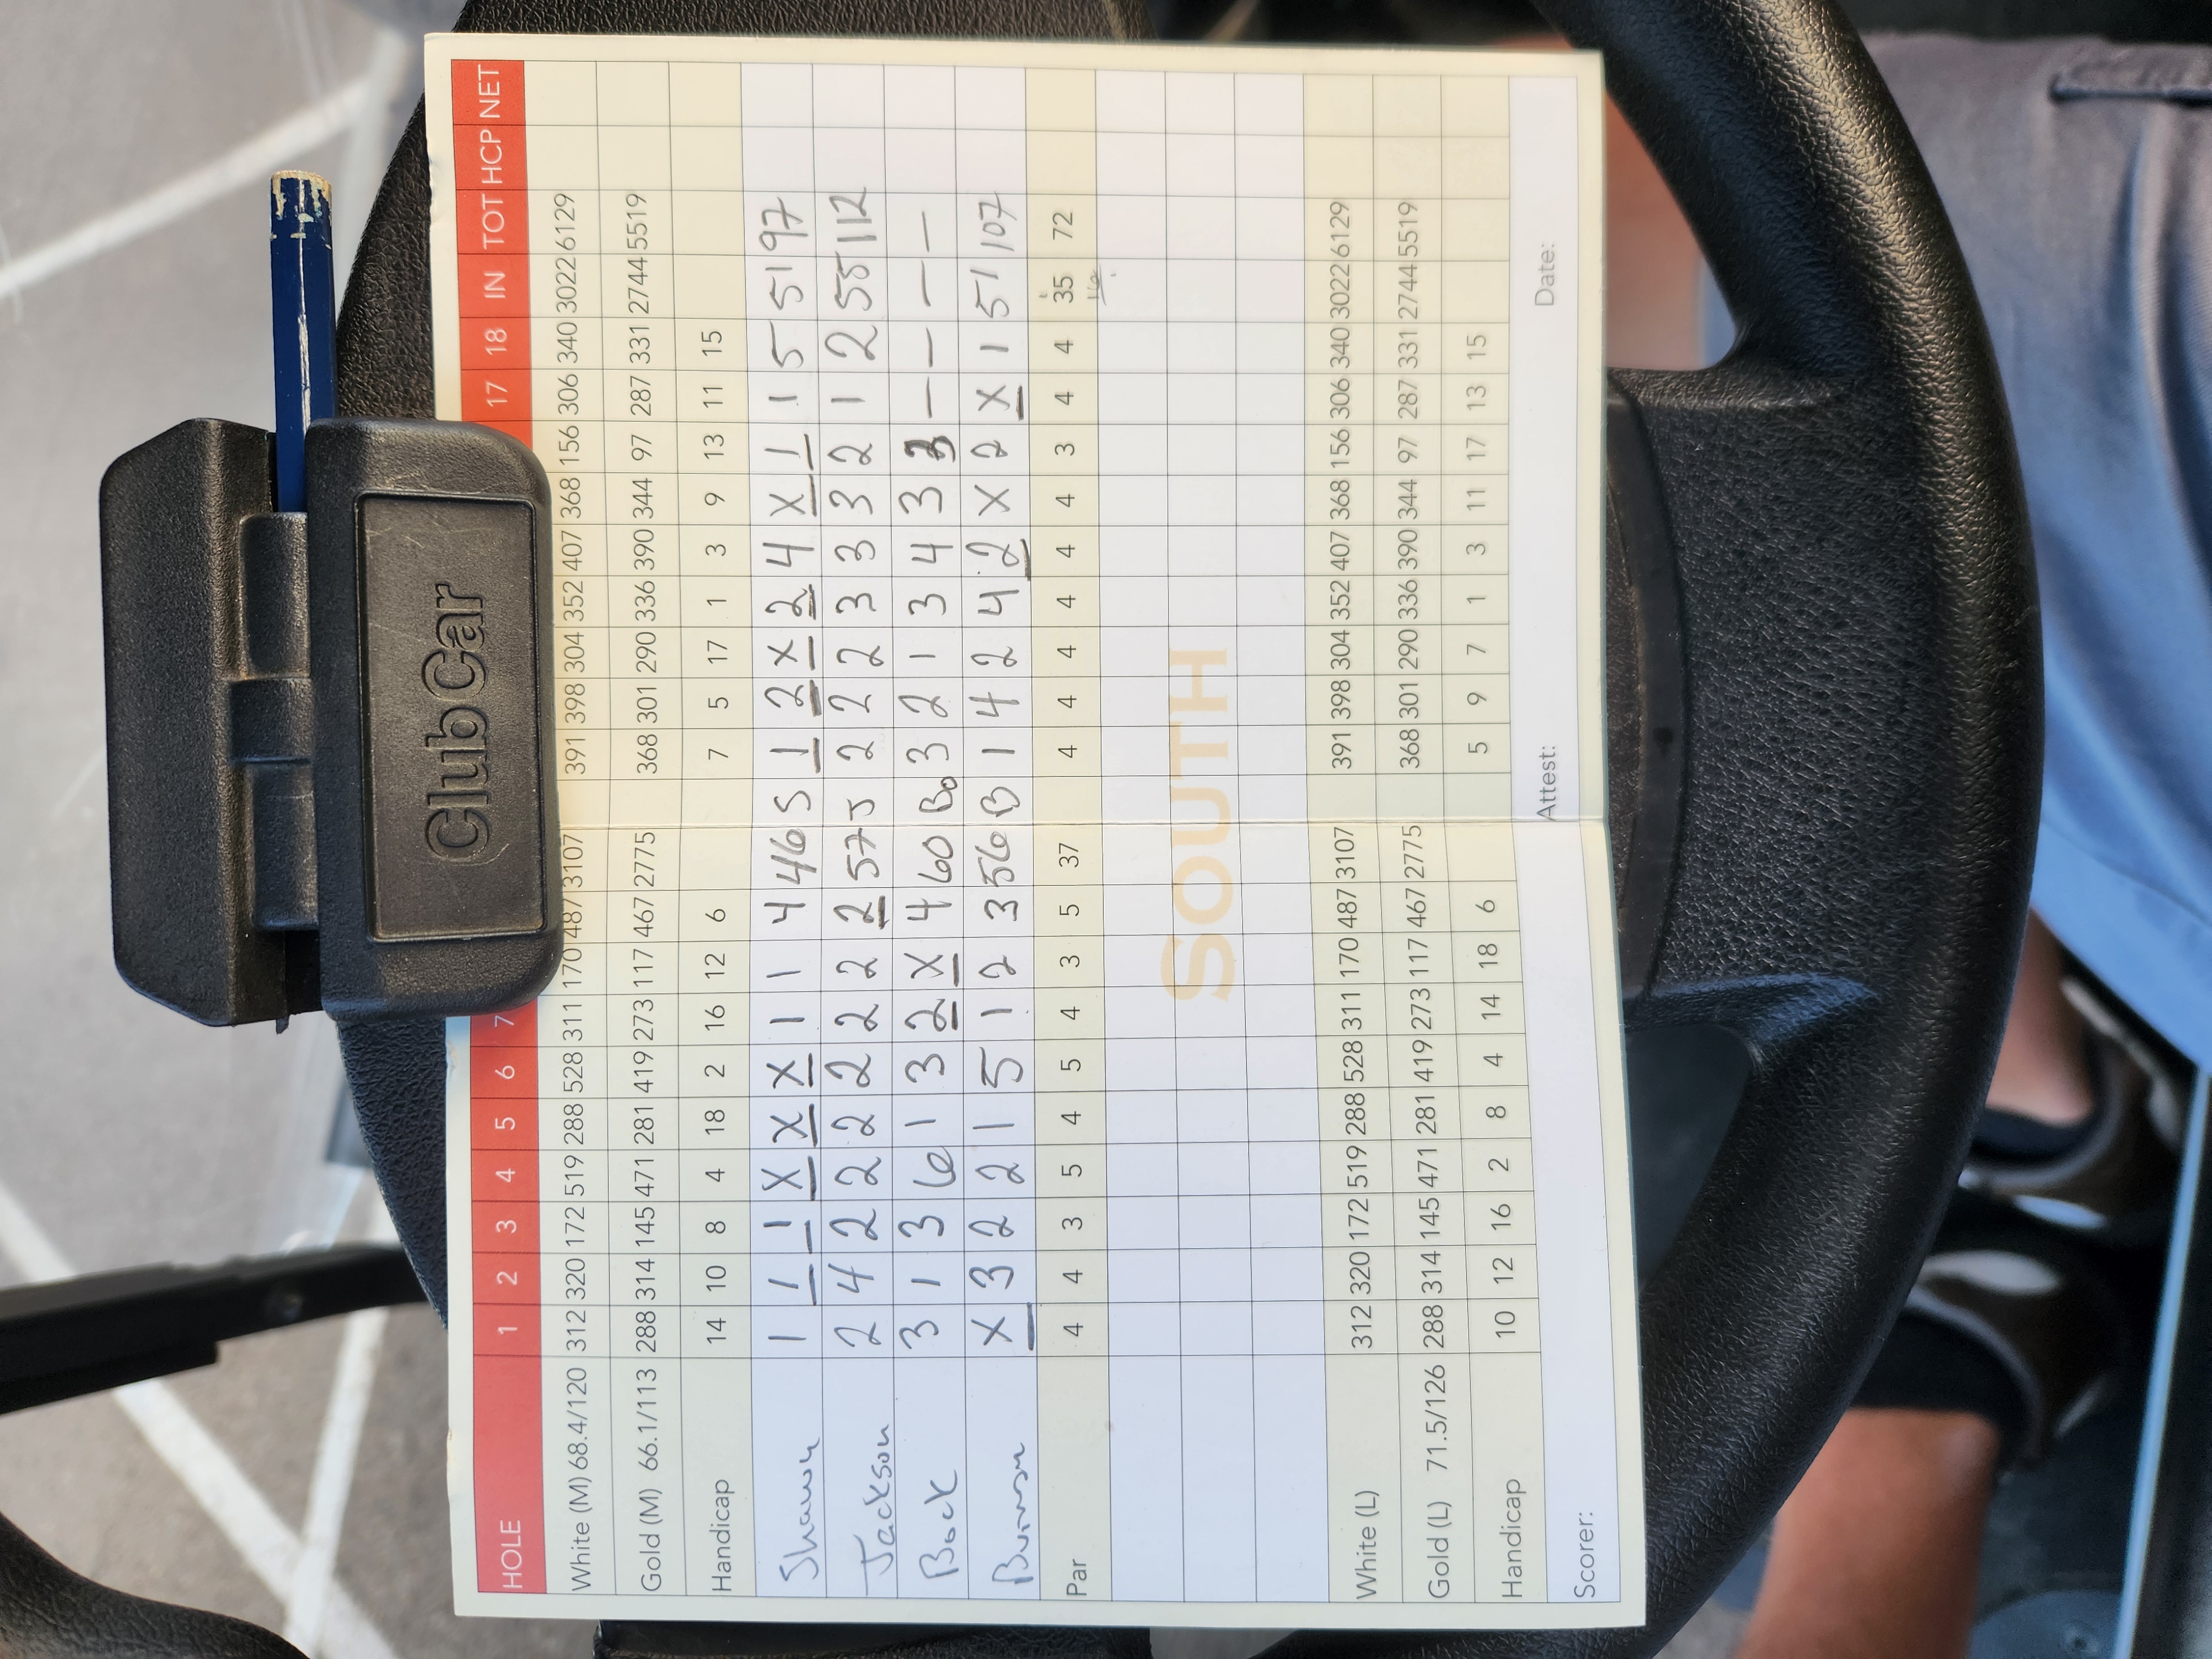 Club Car
HOLE 1 2 3 4 5 6 7 17 18 IN TOT HCP NET
White (M) 68.4/120 312 320 172 519 288 528 311 170 487 3107 391 398 304 352 407 368 156 306 340 3022 6129
Gold (M) 66.1/113 288 314 145 471 281 419 273 117 467 2775 368 301 290 336 390 344 97 287 331 2744 5519
Handicap 14 10 8 4 18 2 16 12 6 7 5 17 1 3 9 13 11 15
Shawn 1 1 1 X X X 1 1 4 46 S 1 2 X 2 4 X 1 1 5 51 97
Jackson 2 4 2 2 2 2 2 2 2 57 J 2 2 2 3 3 3 2 1 2 55 112
Bock 3 1 3 6 1 3 2 X 4 60 Bo 3 2 1 3 4 3 3 — — — —
X 3 2 2 1 5 1 2 3 56 B 1 4 2 4 2 X 2 X 1 51 107
Par 4 4 3 5 4 5 4 3 5 37 4 4 4 4 4 4 3 4 4 35 72
16
SOUTH
White (L) 312 320 172 519 288 528 311 170 487 3107 391 398 304 352 407 368 156 306 340 3022 6129
Gold (L) 71.5/126 288 314 145 471 281 419 273 117 467 2775 368 301 290 336 390 344 97 287 331 2744 5519
Handicap 10 12 16 2 8 4 14 18 6 5 9 7 1 3 11 17 13 15
Scorer: Attest: Date: